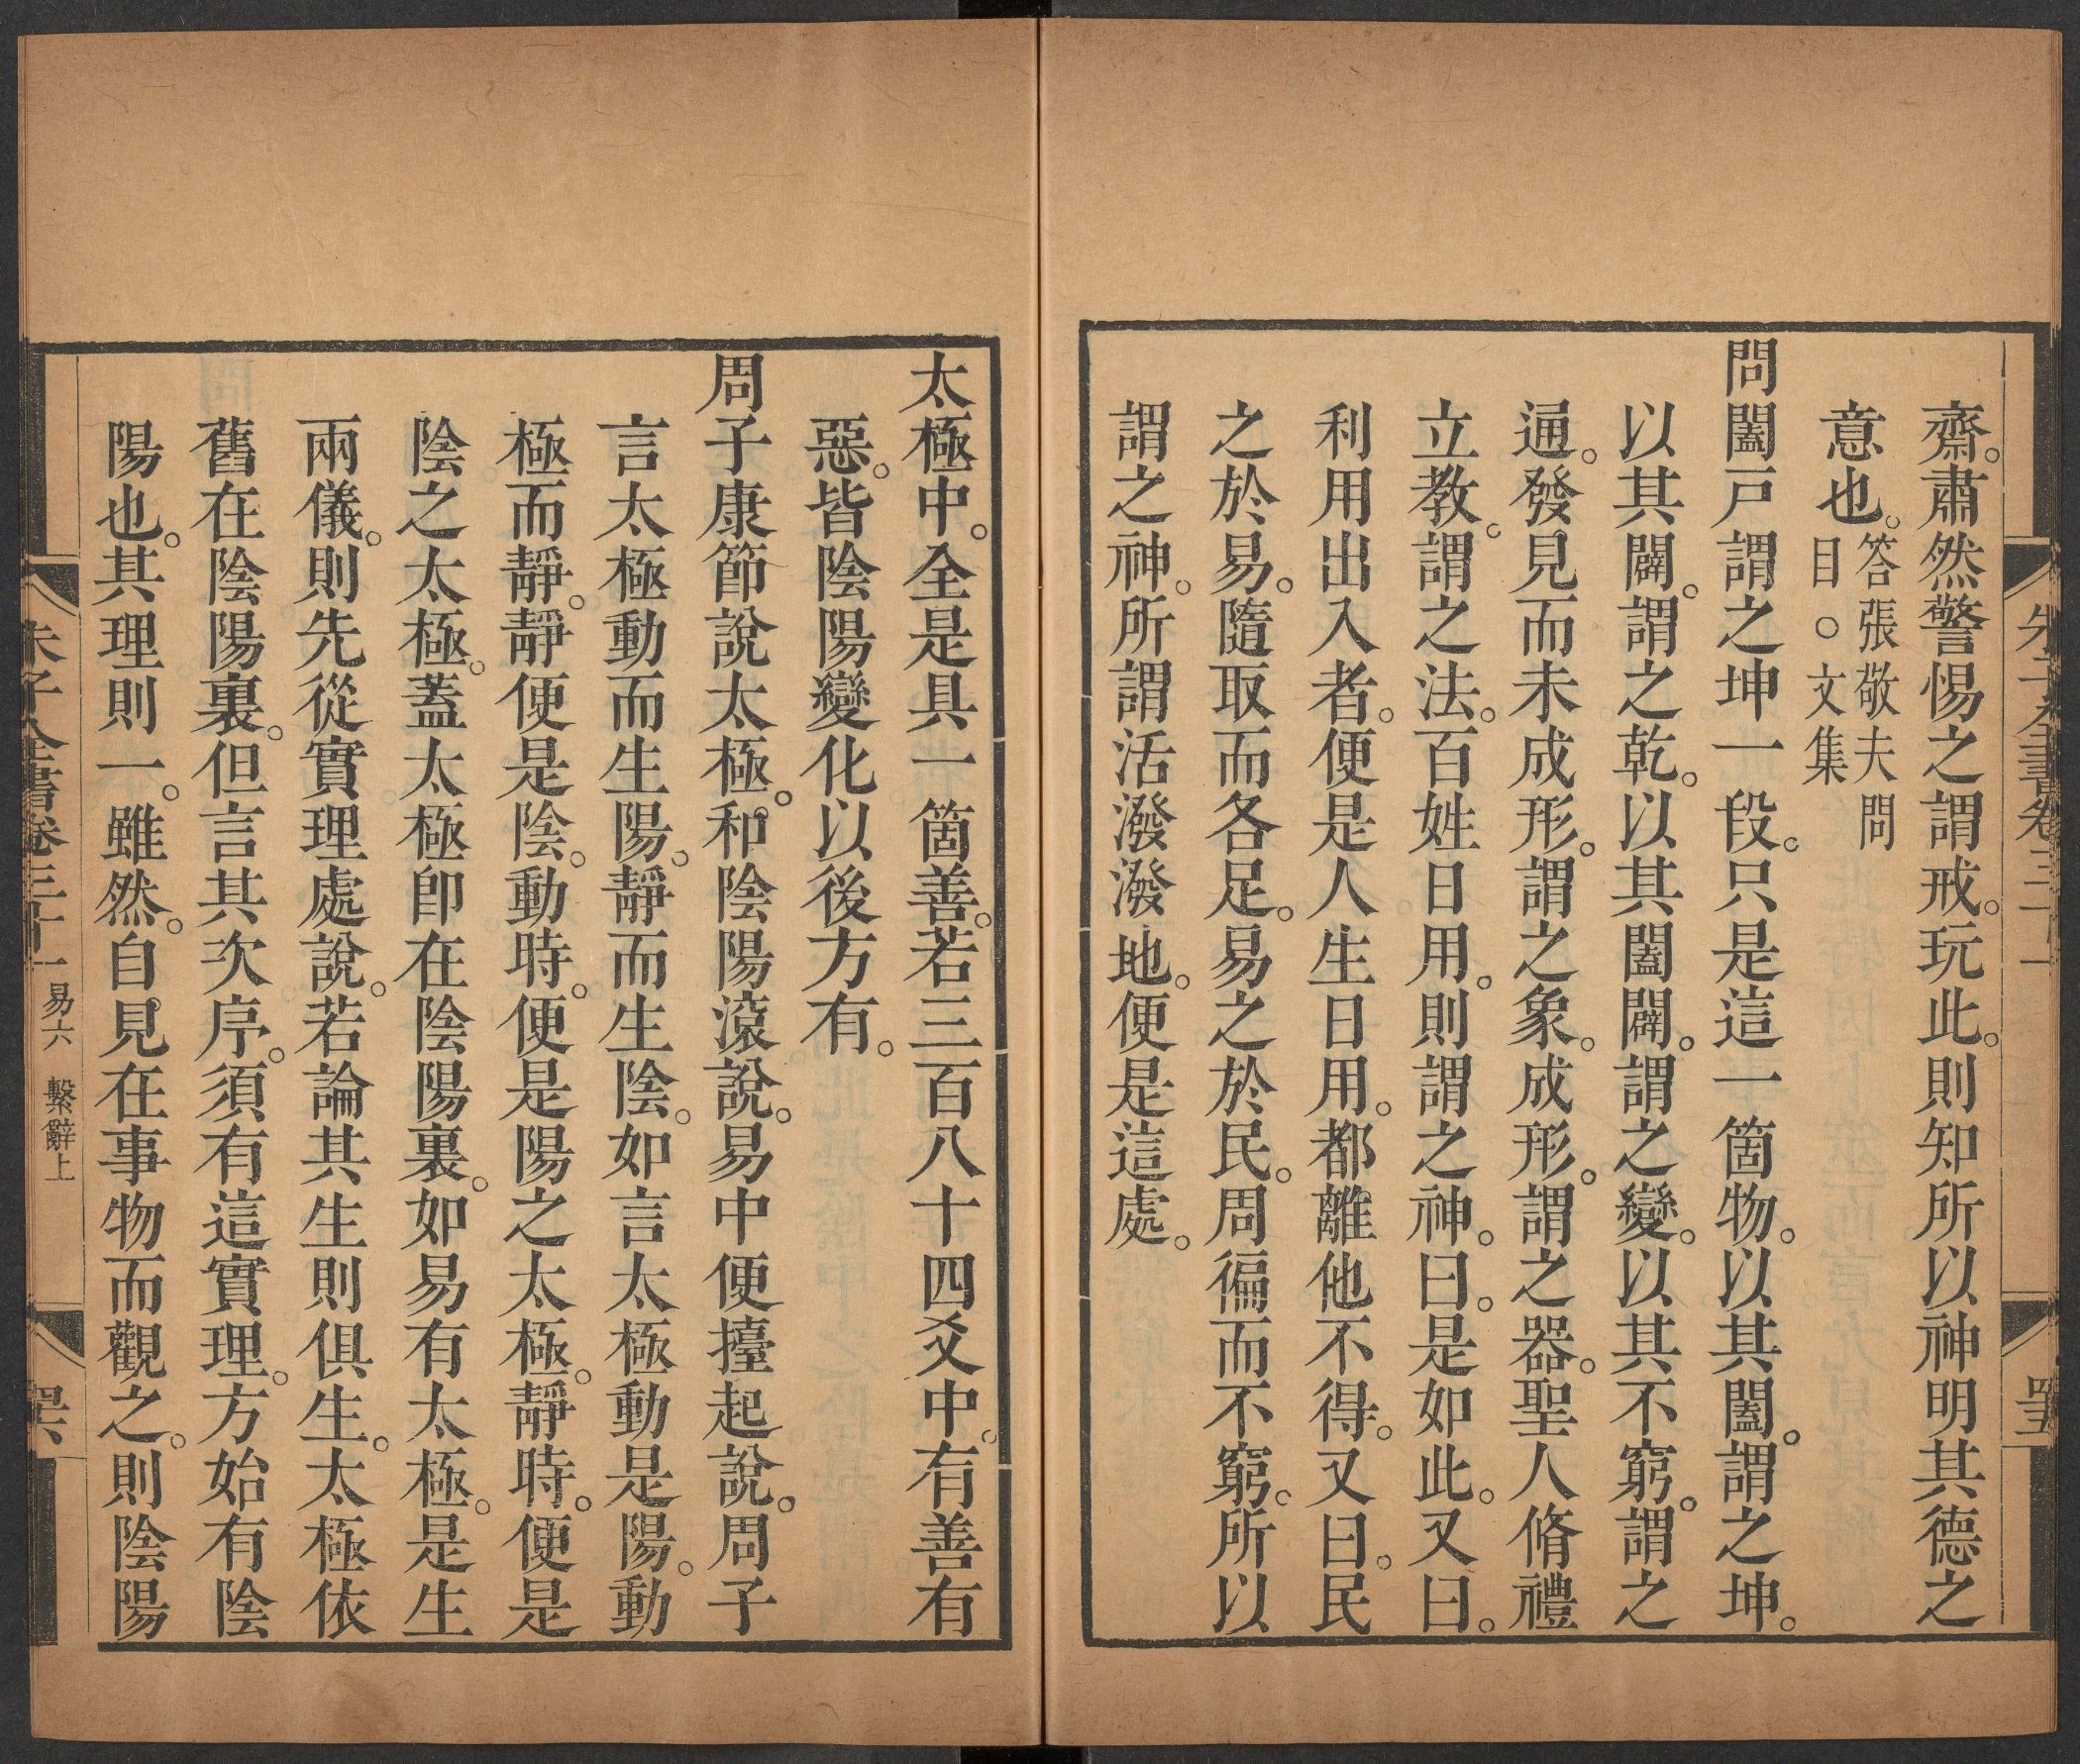 齋。肅然警惕之謂戒。玩此。則知所以神明其德之
意也。答張敬夫問
目。○文集
問闔戸謂之坤一段。只是這一箇物。以其闔。謂之坤。
以其闢。謂之乾。以其闔闢。謂之變。以其不窮。謂之
通。發見而未成形。謂之象。成形。謂之器。聖人脩禮
立教。謂之法。百姓日用。則謂之神。曰。是如此。又曰。
利用出入者。便是人生日用。都離他不得。又曰。民
之於易。隨取而各足。易之於民。周徧而不窮。所以
謂之神。所謂活潑潑地。便是這處。
太極中。全是具一箇善。若三百八十四爻中。有善有
惡。皆陰陽變化以後方有。
周子康節說太極。和陰陽滾說。易中便擡起說。周子
言太極動而生陽。靜而生陰。如言太極動是陽。動
極而靜。靜便是陰。動時。便是陽之太極。靜時。便是
陰之太極。蓋太極卽在陰陽裏。如易有太極。是生
兩儀。則先從實理處說。若論其生則俱生。太極依
舊在陰陽裏。但言其次序。須有這實理。方始有陰
陽也。其理則一。雖然。自見在事物而觀之。則陰陽
朱子全書卷三十一 易六 繫辭上